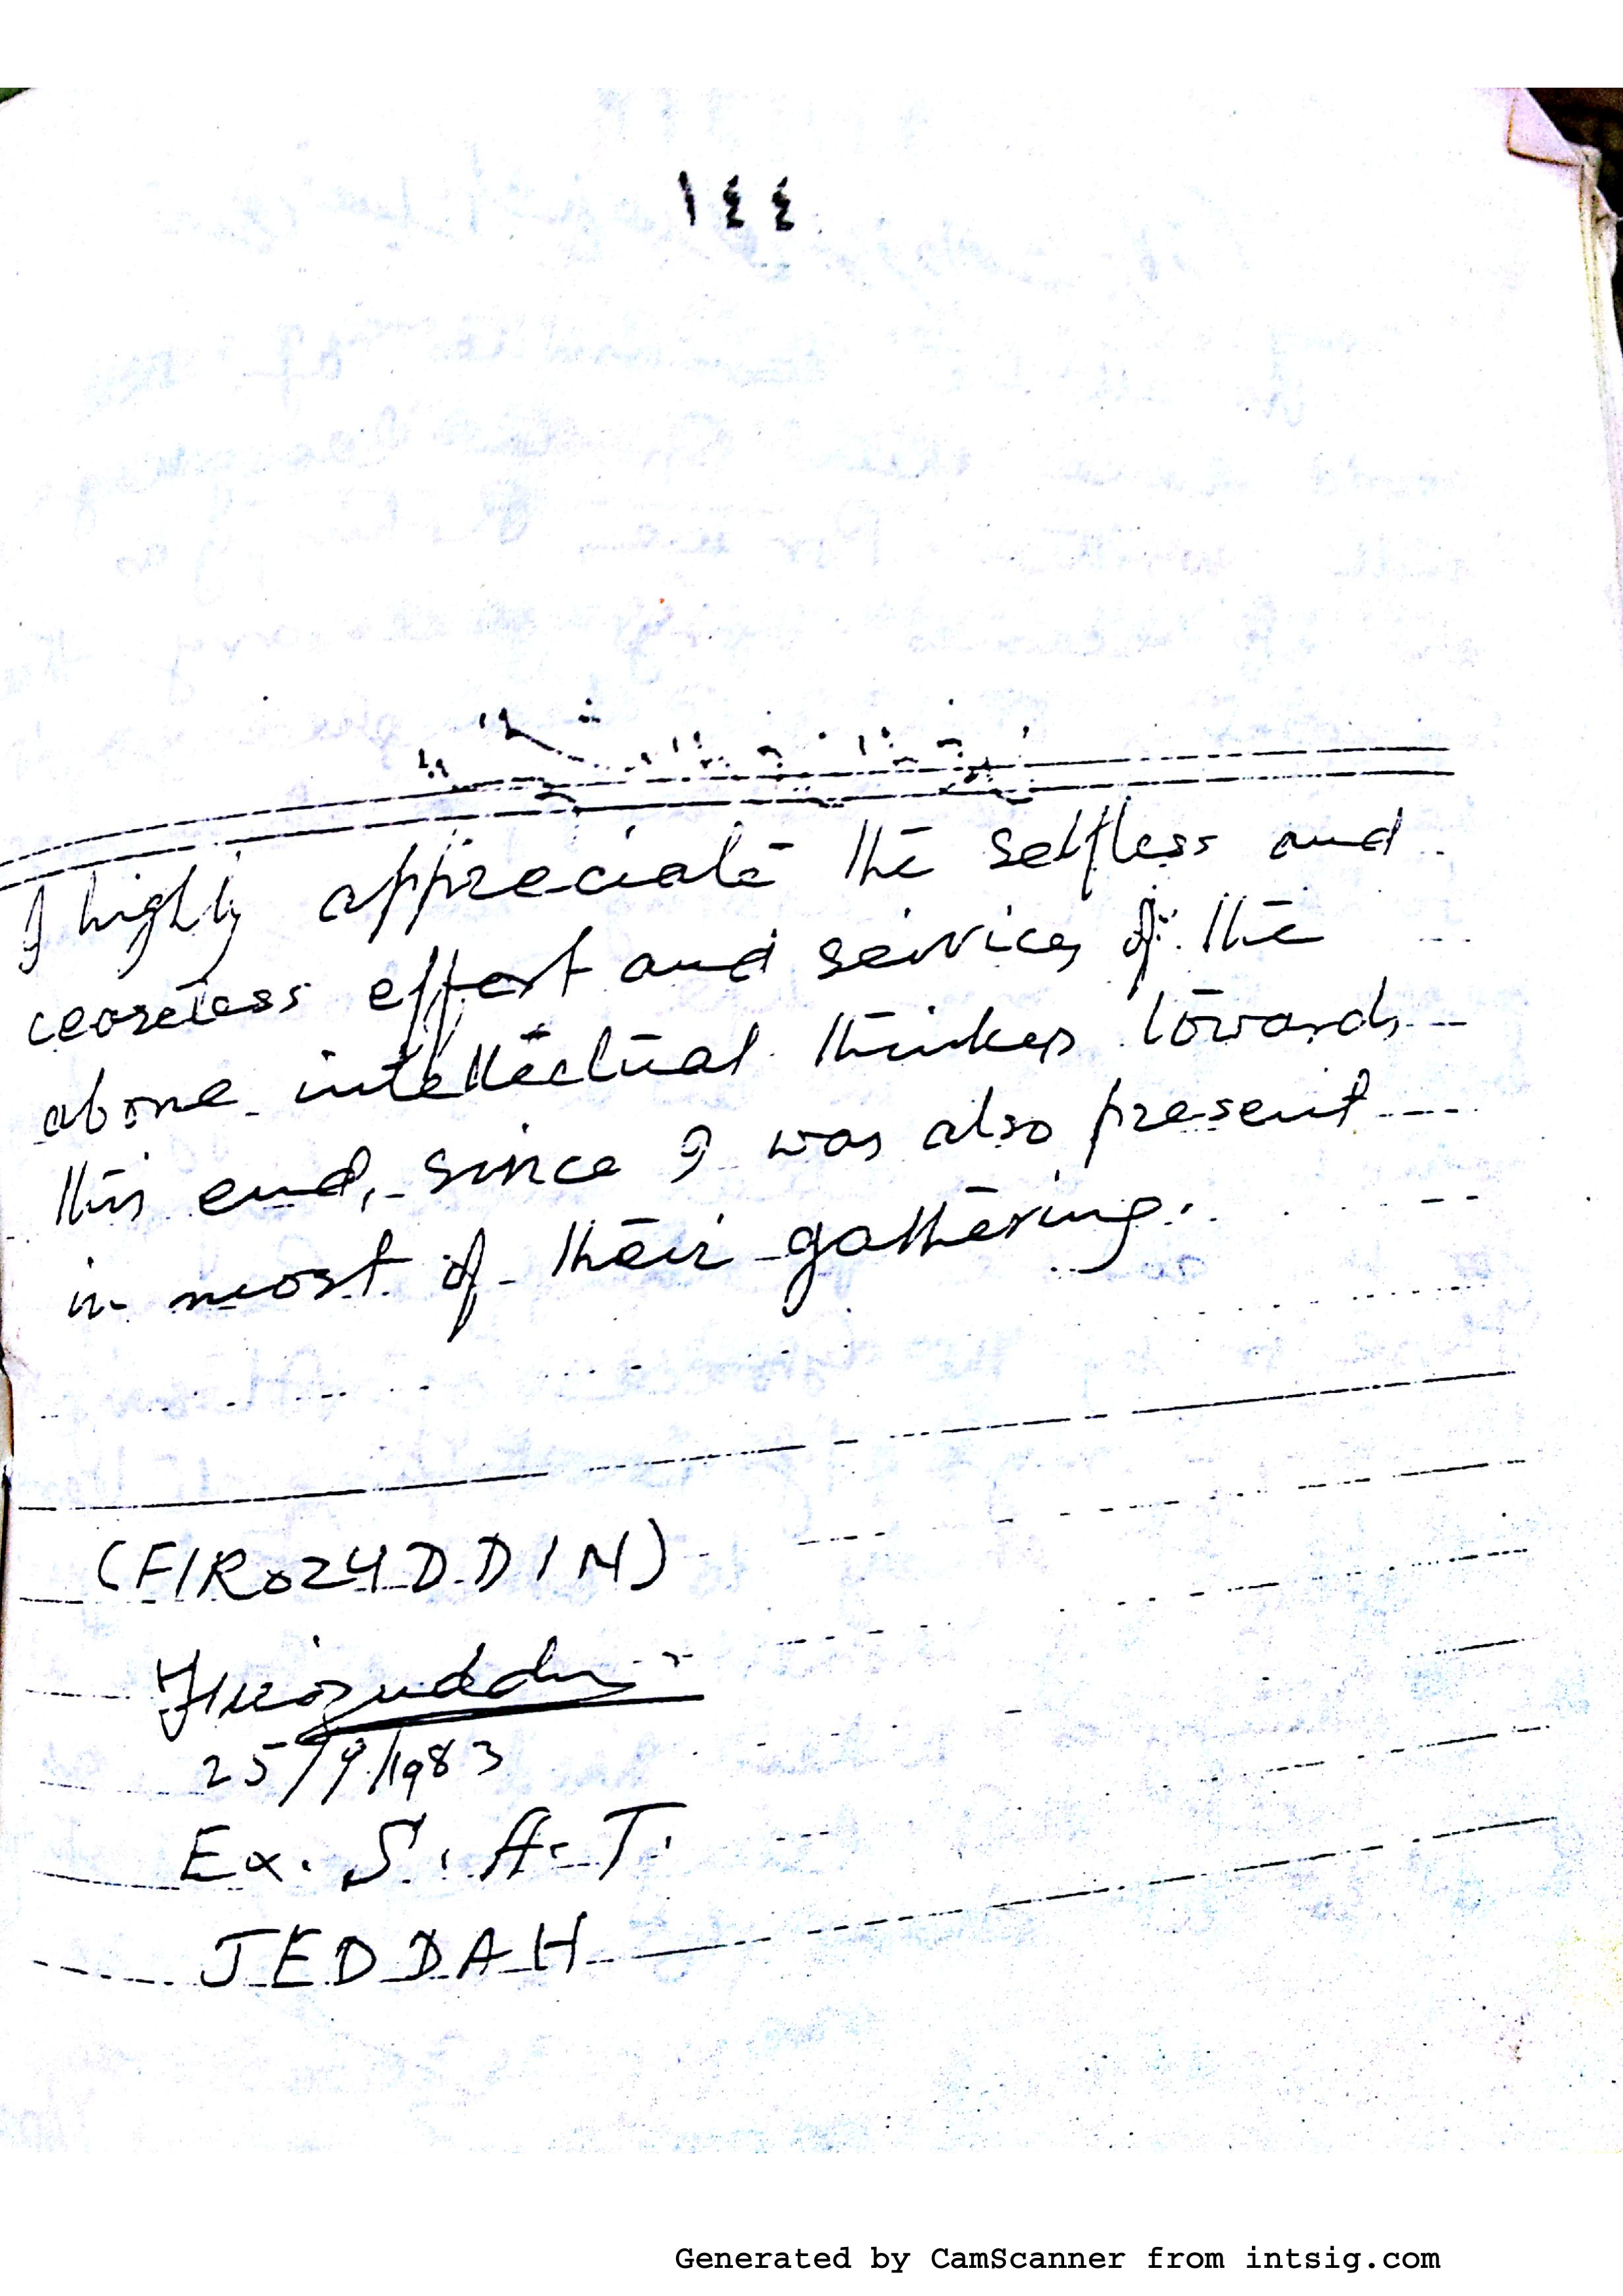 ١٤٤
I highly appreciate the selfless and
ceaseless effort and services of the
above intellectual thinkers towards
this end, since I was also present
in most of their gathering.
(FIROZUDDIN)
Firozuddin
25/9/1983
Ex. S. A. T.
JEDDAH
Generated by CamScanner from intsig.com